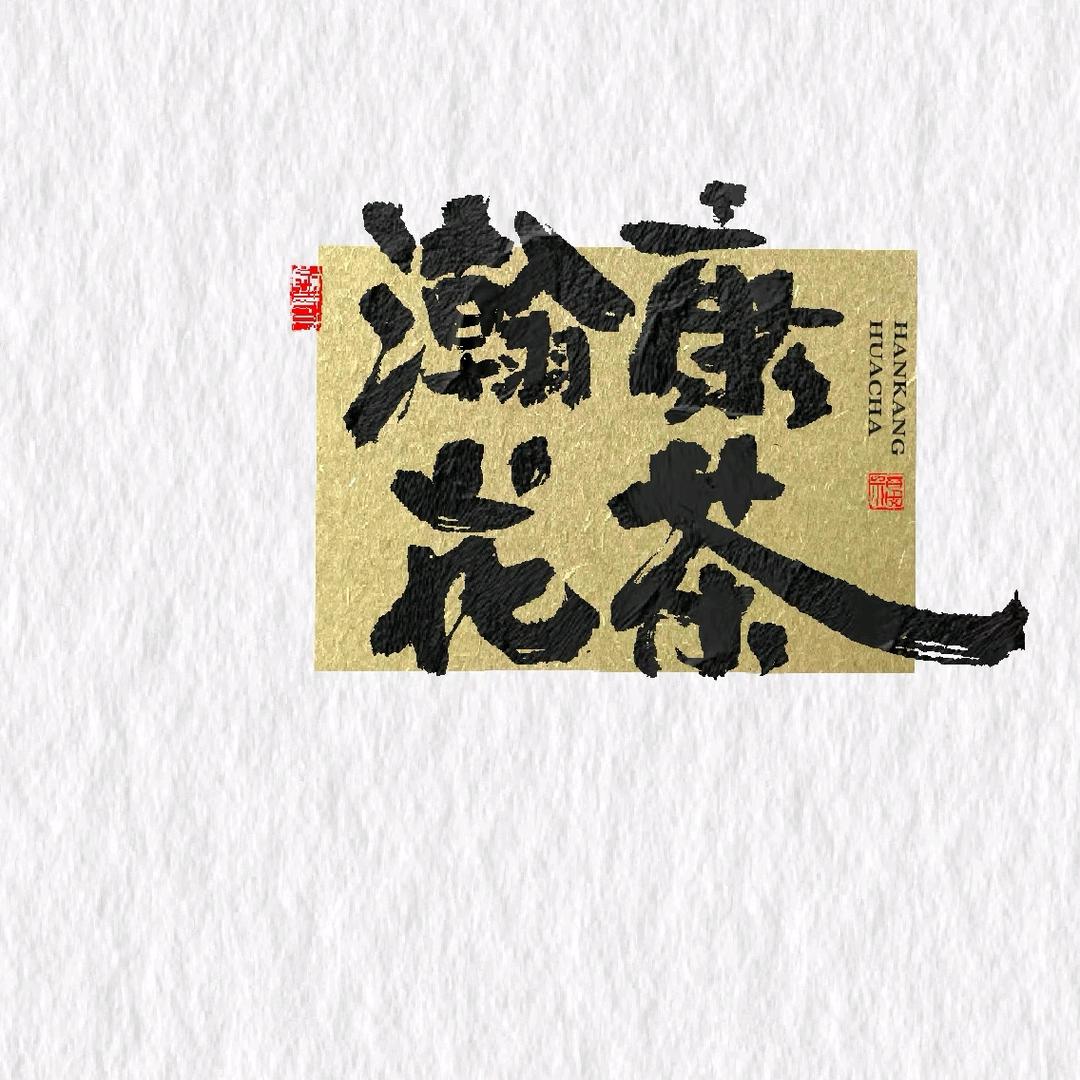 瀚康
花茶
HANKANG
HUACHA